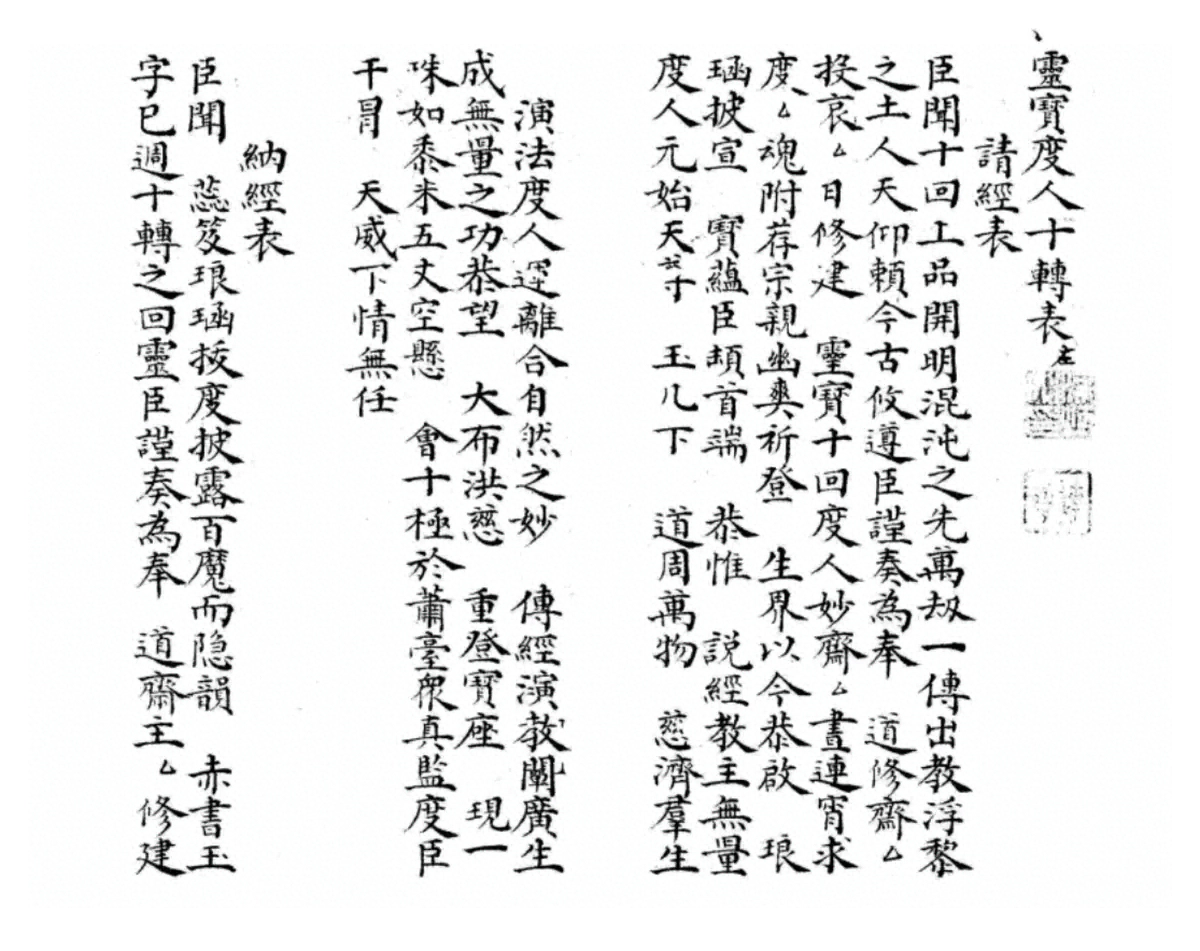 靈寶度人十轉表
請經表
臣聞十回上品開明混沌之先萬劫一傳出教浮黎
之土人天仰賴今古攸遵臣謹奏為奉 道修齋厶
投哀厶日修建 靈寶十回度人妙齋厶晝連宵求
度厶魂附荐宗親幽爽祈登 生界以今恭啟 琅
函披宣 寶蘊臣頡首端 恭惟 說經教主無量
度人元始天尊 玉几下 道周萬物 慈濟羣生
演法度人運離合自然之妙 傳經演教闡廣生
成無量之功恭望 大布洪慈 重登寶座 現一
珠如黍米五丈空懸 會十極於蕭臺眾真監度臣
干冒 天威下情無任
納經表
臣聞 蕊笈琅函拔度披露百魔而隐韻 赤書玉
字已週十轉之回靈臣謹奏為奉 道齋主厶修建